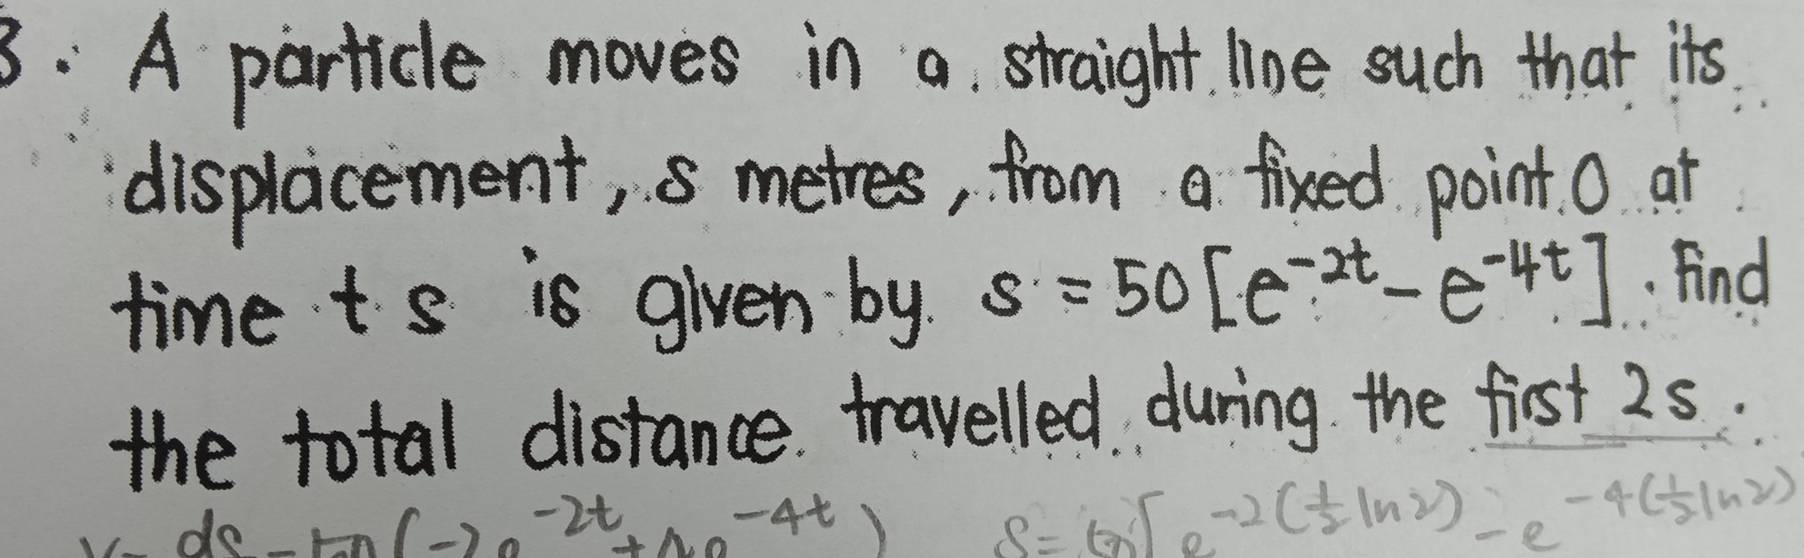 3. A particle moves in a straight line such that its
displacement, s metres, from a fixed point O at
time t s is given by s = 50 [e^{-2t} - e^{-4t}]. Find
the total distance travelled during the first 2s.
ds (-2e^{-2t} + 4e^{-4t}) s = [e^{-2(½ ln 2)} - e^{-4(½ ln 2)}